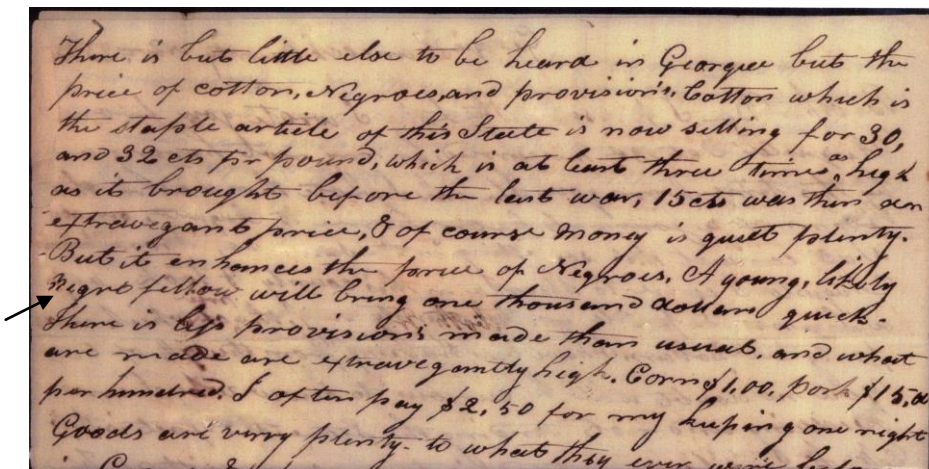 There is but little else to be heard in Georgee but the
price of cotton, Negroes, and provision's. Cotton which is
the staple article of this State is now selling for 30,
and 32 cts pr pound, which is at least three times as high
as it brought before the last war, 15 cts was then an
extravegant price, & of course money is quiet plenty.
But it enhances the price of Negroes. A young, likely
Negro fellow will bring one thousand dollars quick.
There is less provision's made than usual, and what
are made are extravegantly high. Corn $1,00, pork $15,00
per hundred. I often pay $2,50 for my keeping one night
Goods are verry plenty to what they ever